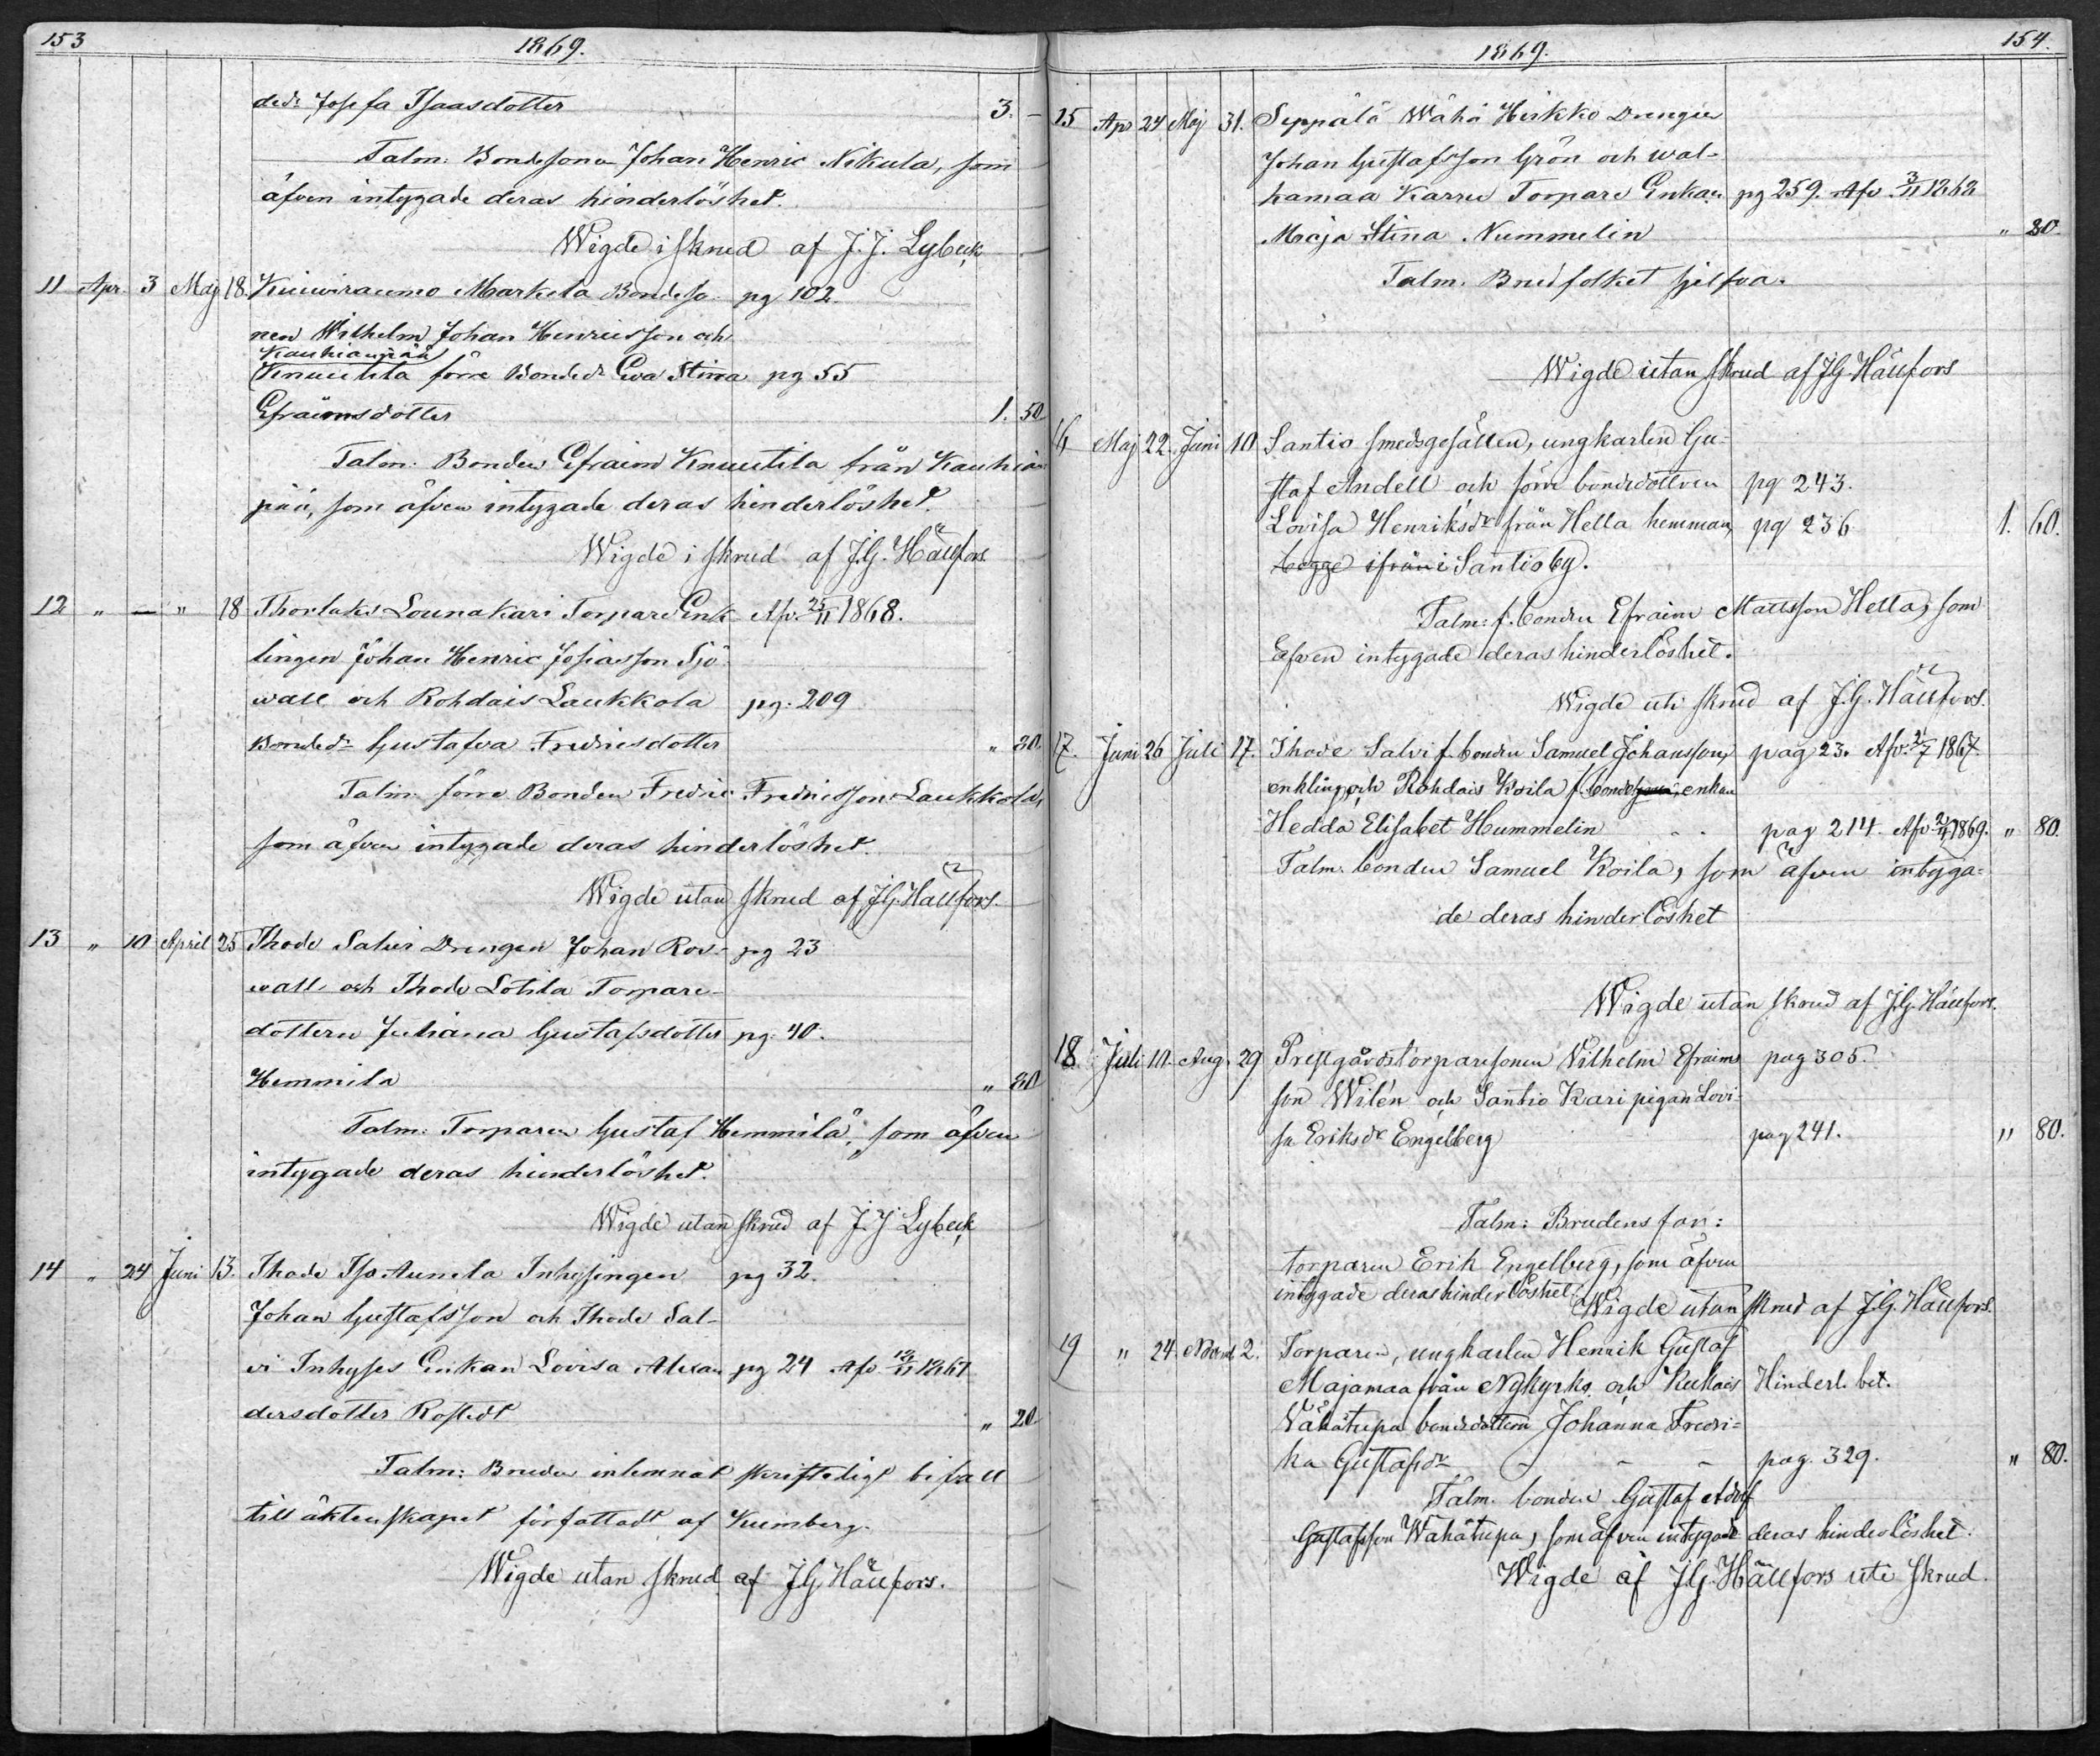 153 1869.
ded: Josefa Isaasdotter 3. -
Talm: Bondesonen Johan Henric Nikula, som
äfven intygade deras hinderlöshet.
Wigde i skrud af J. J. Lybeck
11 Apr. 3 Maj 18. Kuiwiraumo Markela Bondeso- pg 102
nen Wilhelm Johan Henricsson och
Kauhianpää
Knuutila förre Bonded: Ewa Stina pg 55
Efraimsdotter 1. 50
Talm: Bonden Efraim Knuutila från Kauhian
pää, som äfven intygade deras hinderlöshet.
Wigde i skrud af J.G. Hällfors
12 " — " 18 Thorlaks Lounakari Torpare Enk- Afv. 25/11 1868.
lingen Johan Henric Josiasson Sjö-
wall och Rohdais Laukkola pg. 209
Bonded: Gustafva Fredricsdotter " 80
Talm: förre Bonden Fredric Fredricsson Laukkola,
som äfven intygade deras hinderlöshet.
Wigde utan skrud af J.G. Hällfors.
13 " 10 April 25 Thode Salvi Drengen Johan Ros- pg 23
wall och Thode Lotila Torpare-
dottern Juliana Gustafsdotter pg. 40.
Hemmila " 80
Talm: Torparen Gustaf Hemmilä, som äfven
intygade deras hinderlöshet.
Wigde utan skrud af J. J. Lybeck
14 " 24 Juni 13. Thode Iso Aunela Inhysingen pg 32.
Johan Gustafsson och Thode Sal-
vi Inhyses Enkan Lovisa Alexan pg 24 Afv 12/11 1867
dersdotter Rostedt " 20
Talm: Bruden inlemnat skrifteligt bifall
till äktenskapet författadt af Kumberg.
Wigde utan skrud af J.G. Hällfors.
1869. 154.
15 Apr 24 Maj 31. Seppälä Wähä Heikko Drengen
Johan Gustafsson Grön och wal-
kamaa Karru Torpare Enkan pg 259. Afv. 3/11 1868
Maja Stina Nummelin " 80.
Talm. Brudfolket sjelfva.
Wigde utan skrud af J.G. Hällfors
16 Maj 22. Juni 10 Santio smedsgesällen, ungkarlen Gu-
staf Andell och förre bondedottren pg 243.
Lovisa Henriksdr från Hella hemman, pg 236 1. 60.
begge ifrån i Santio by.
Talm: f. bonden Efraim Mattsson Hella, som
Efven intygade deras hinderlöshet.
Wigde uti skrud af J.G. Hällfors.
17. Juni 26 Juli 17. Thode Salvi f. bonden Samuel Johansson, pag 23. Afv. 2/7 1867.
enkling, och Rohdais Koila f. bonde enkan
Hedda Elisabet Hummelin pag 214. Afv 2/4 1869. " 80.
Talm. bonden Samuel Koila, som äfven intyga-
de deras hinderlöshet
Wigde utan skrud af J.G. Hällfors.
18 Juli 10. Aug. 29 Prestgårdstorparesonen Wilhelm Efraims pag 305.
son Wilén och Santio Kari pigan Lovi-
sa Eriksdr Engelberg pag 241. " 80.
Talm: Brudens far:
torparen Erik Engelberg, som äfven
intygade deras hinderlöshet.
Wigde utan skrud af J.G. Hällfors.
19 " 24. Novemb 2. Torparen, ungkarlen Henrik Gustaf
Majamaa från Nykyrko och Kukais Hinderl. bet.
Vähätupa bondedottern Johanna Fredri-
ka Gustafsdr - - - pag. 329. " 80.
Talm. bonden Gustaf Adolf
Gustafsson Wähätupa, som äfven intygade deras hinderlöshet.
Wigde af J.G. Hällfors uti skrud.